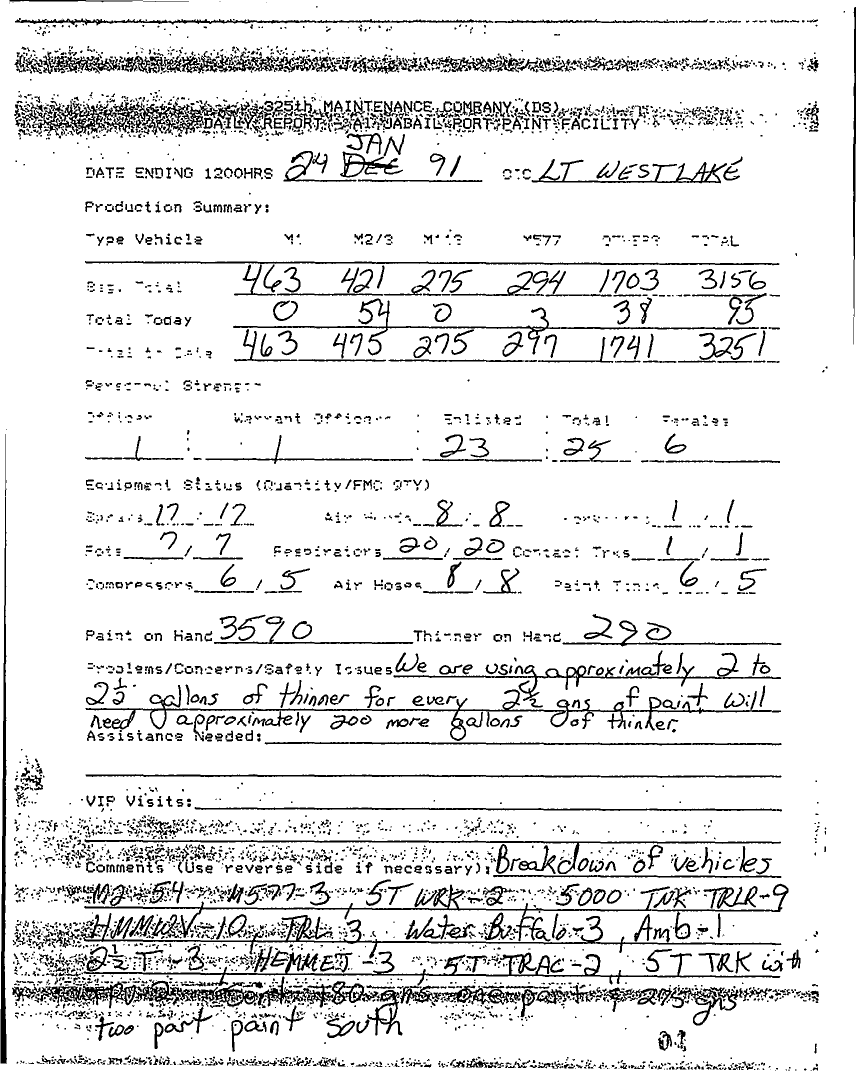 325th MAINTENANCE COMPANY (DS)
DAILY REPORT - Al JABAIL PORT PAINT FACILITY
JAN
DATE ENDING 1200HRS 24 DEC 91 OIC LT WESTLAKE
Production Summary:
Type Vehicle M1 M2/3 M113 M577 OTHERS TOTAL
Beg. Total 463 421 275 294 1703 3156
Total Today 0 54 0 3 38 95
Total to Date 463 475 275 297 1741 3251
Personnel Strength
Officer Warrant Officers Enlisted Total Females
1 1 23 25 6
Equipment Status (Quantity/FMC QTY)
17 / 17 Air 8 / 8 1 / 1
Pots 7 / 7 Respirators 20 / 20 Contact Trks 1 / 1
Compressors 6 / 5 Air Hoses 8 / 8 Paint 6 / 5
Paint on Hand 3590 Thinner on Hand 290
Problems/Concerns/Safety Issues We are using approximately 2 to
2½ gallons of thinner for every 2½ gns of paint will
need approximately 200 more gallons of thinner.
Assistance Needed:
VIP Visits:
Comments (Use reverse side if necessary): Breakdown of vehicles
M2-54, M577-3, 5T WRK-2, 5000 TNK TRLR-9
HMMWV-10, TRL-3, Water Buffalo-3, Amb-1
2½ T-3, HEMMET-3, 5T TRAC-2, 5T TRK with
180 gns one part & 275 gns
two part paint south